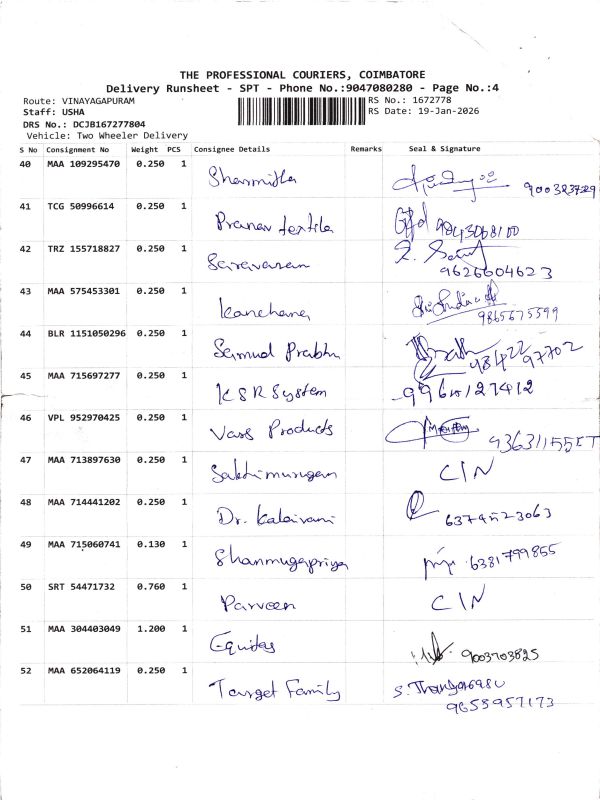 THE PROFESSIONAL COURIERS, COIMBATORE
Delivery Runsheet - SPT - Phone No.:9047080280 - Page No.:4
Route: VINAYAGAPURAM RS No.: 1672778
Staff: USHA RS Date: 19-Jan-2026
DRS No.: DCJB167277804
Vehicle: Two Wheeler Delivery
S No Consignment No Weight PCS Consignee Details Remarks Seal & Signature
40 MAA 109295470 0.250 1
Sharmitha
41 TCG 50996614 0.250 1
Pranav textile 9843068100
42 TRZ 155718827 0.250 1
Saravanan
9626604623
43 MAA 575453301 0.250 1
Kanchana
9865675599
44 BLR 1151050296 0.250 1
Samud Prabhu 98422 97702
45 MAA 715697277 0.250 1
KSR System
46 VPL 952970425 0.250 1
Vaas Products
47 MAA 713897630 0.250 1
Sakthimurugan C/N
48 MAA 714441202 0.250 1
Dr. Kalaivani
49 MAA 715060741 0.130 1
Shanmugapriya 6381799855
50 SRT 54471732 0.760 1
Parveen C/N
51 MAA 304403049 1.200 1
Equitas 9003703825
52 MAA 652064119 0.250 1
Target Family
9655957173